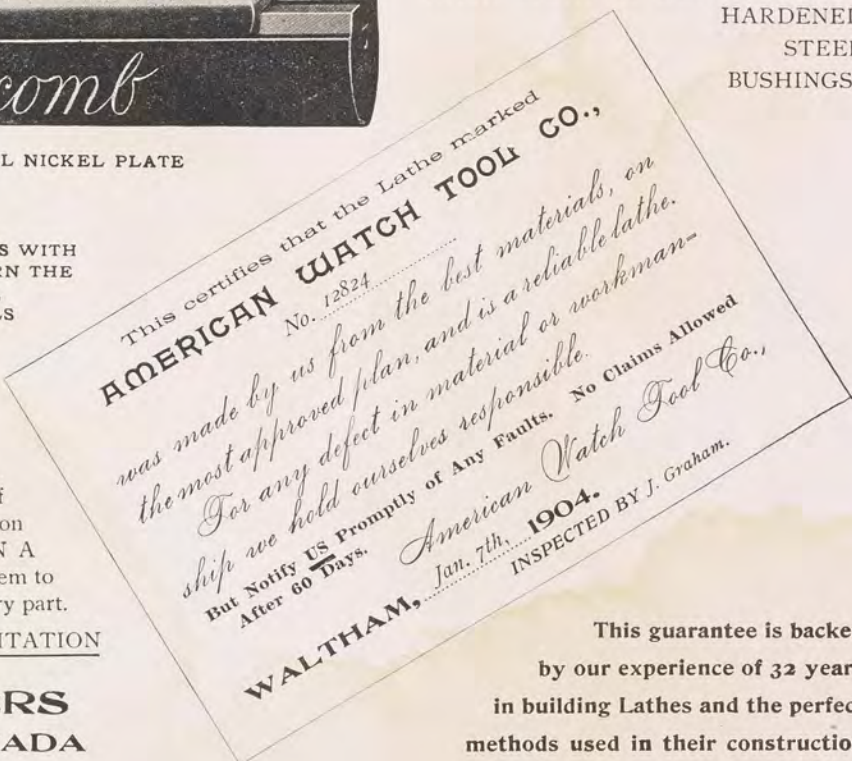 HARDENED
STEEL
BUSHINGS
comb
L NICKEL PLATE
S WITH
RN THE
LS
This certifies that the Lathe marked
AMERICAN WATCH TOOL CO.,
No. 12824
was made by us from the best materials, on
the most approved plan, and is a reliable lathe.
For any defect in material or workman-
ship we hold ourselves responsible.
But Notify US Promptly of Any Faults. No Claims Allowed
After 60 Days.
American Watch Tool Co.,
WALTHAM, Jan. 7th, 1904.
INSPECTED BY J. Graham.
f
on
N A
em to
ry part.
ITATION
ERS
ADA
This guarantee is backe
by our experience of 32 year
in building Lathes and the perfec
methods used in their constructio